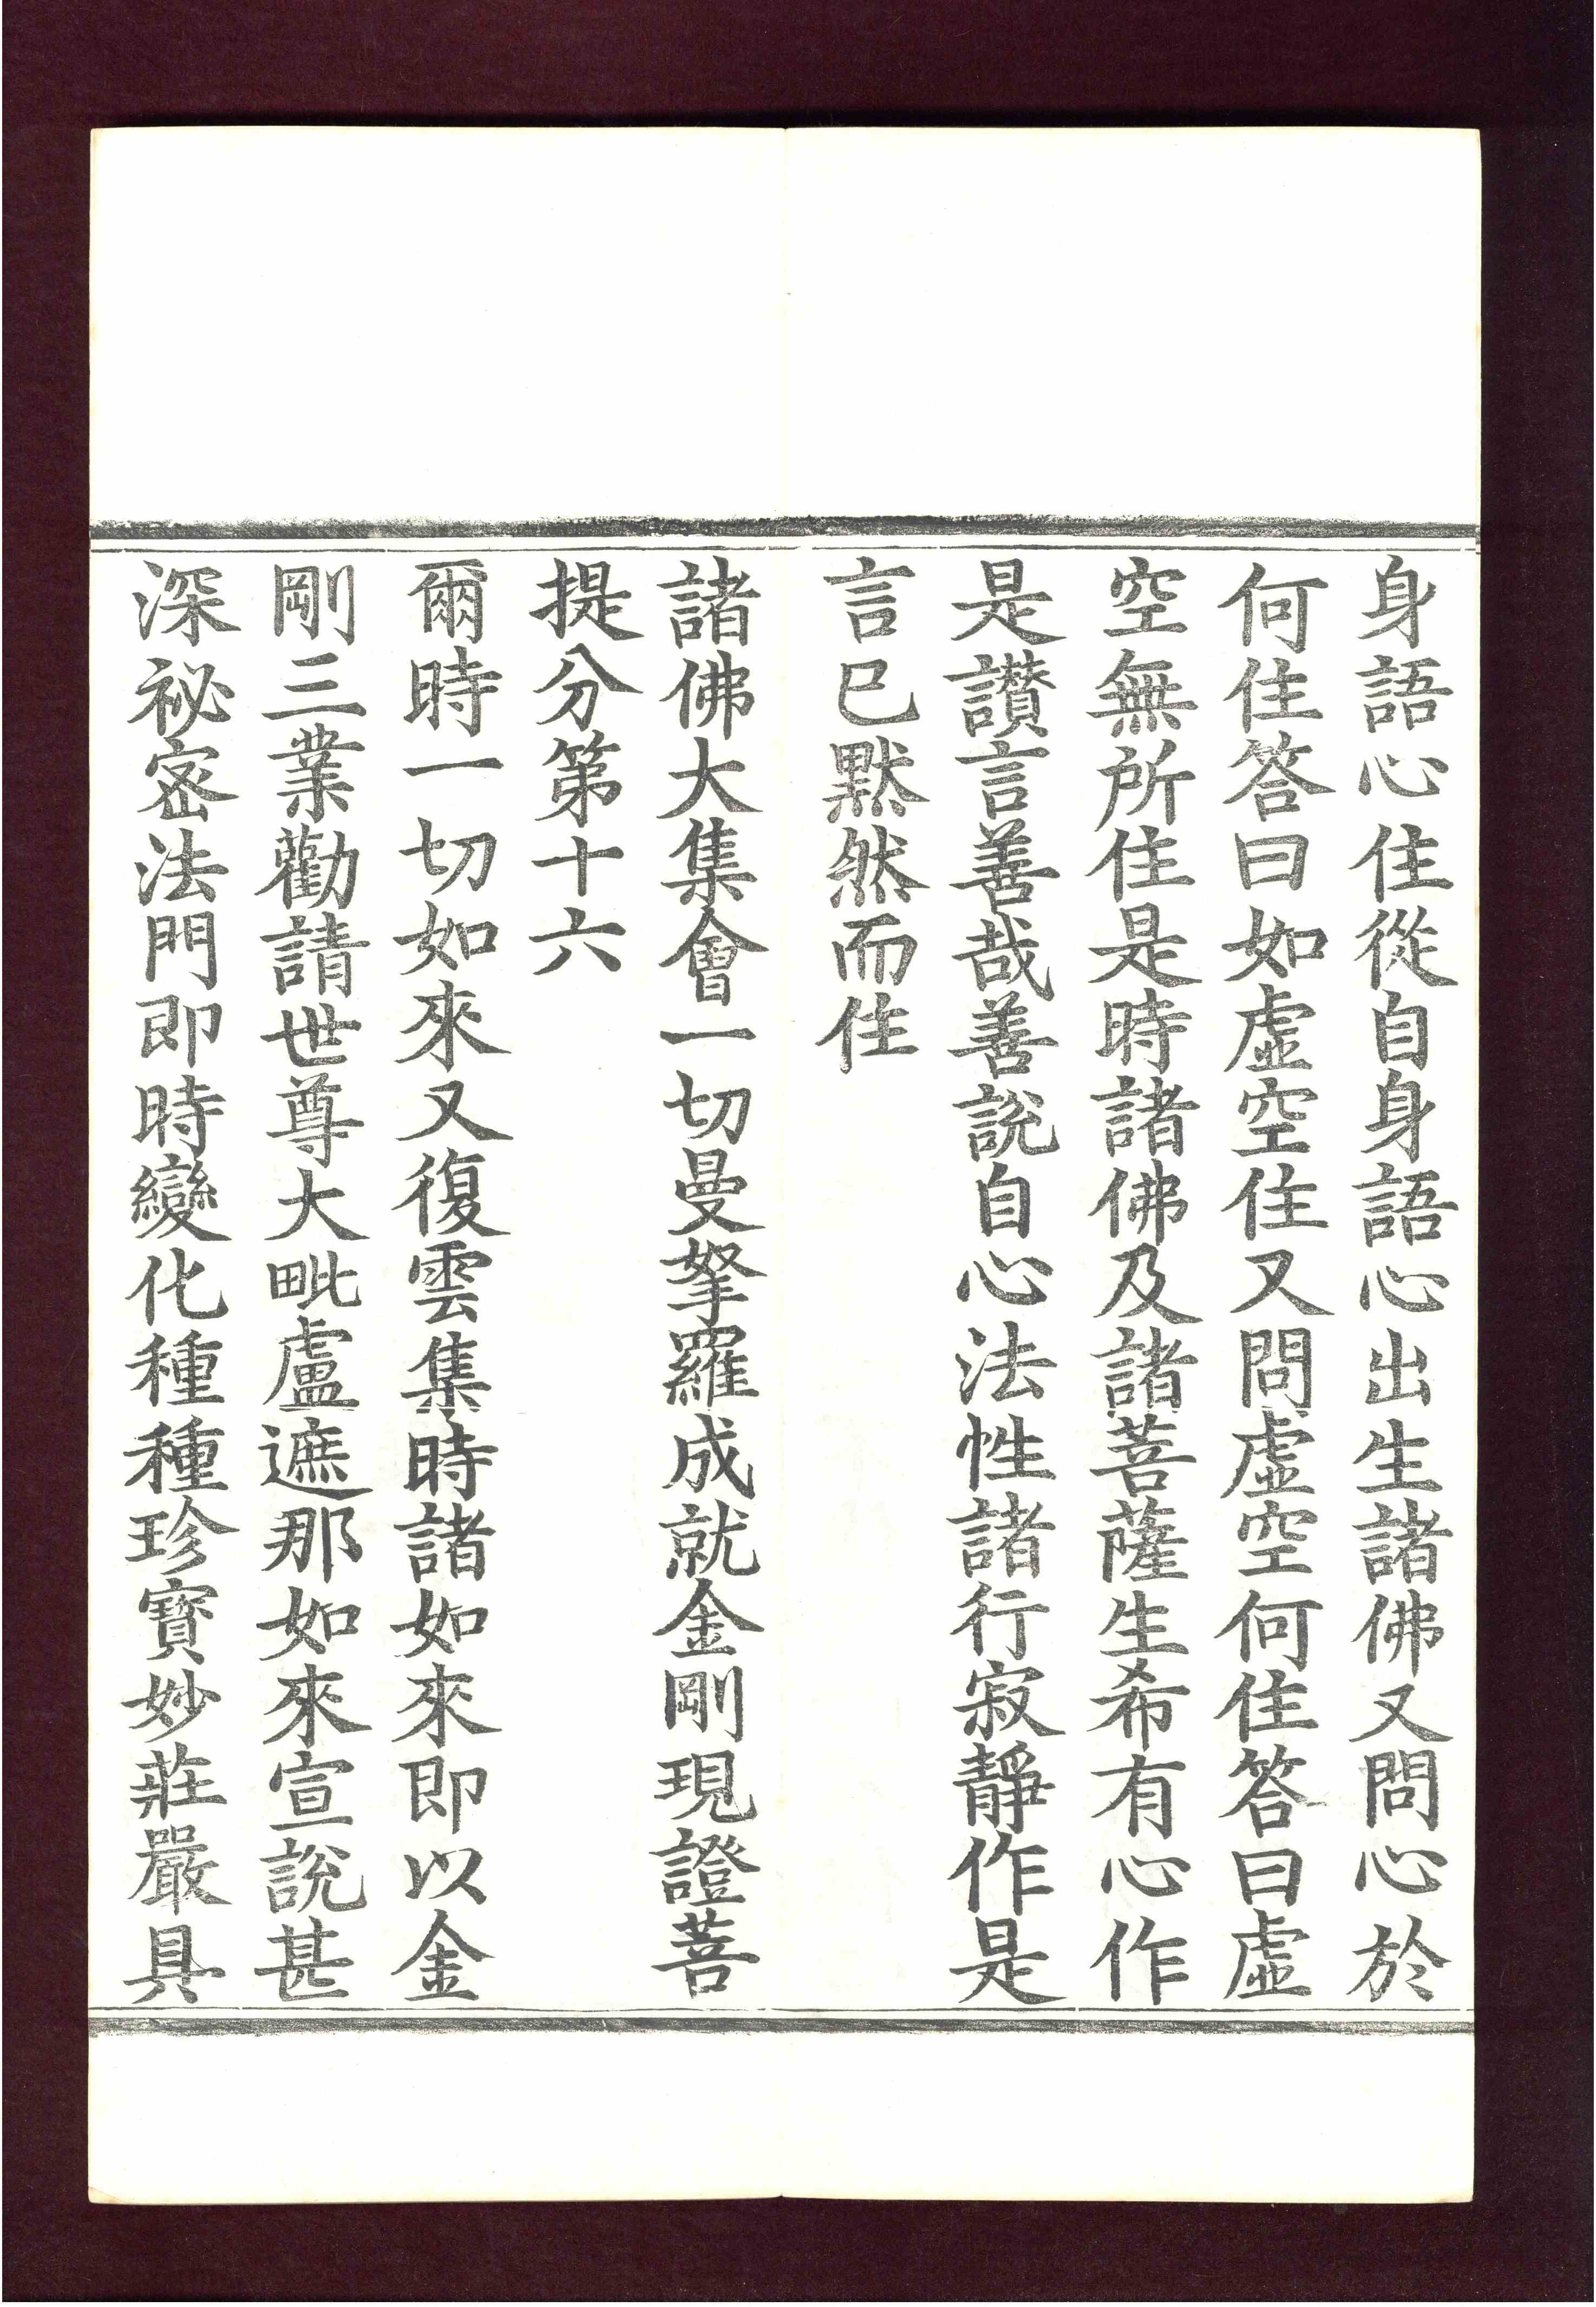 身語心住從自身語心出生諸佛又問心於
何住答曰如虛空住又問虛空何住答曰虛
空無所住是時諸佛及諸菩薩生希有心作
是讚言善哉善哉善說自心法性諸行寂靜作是
言已默然而住
諸佛大集會一切曼拏羅成就金剛現證菩
提分第十六
爾時一切如來又復雲集時諸如來即以金
剛三業勸請世尊大毗盧遮那如來宣說甚
深祕密法門即時變化種種珍寶妙莊嚴具